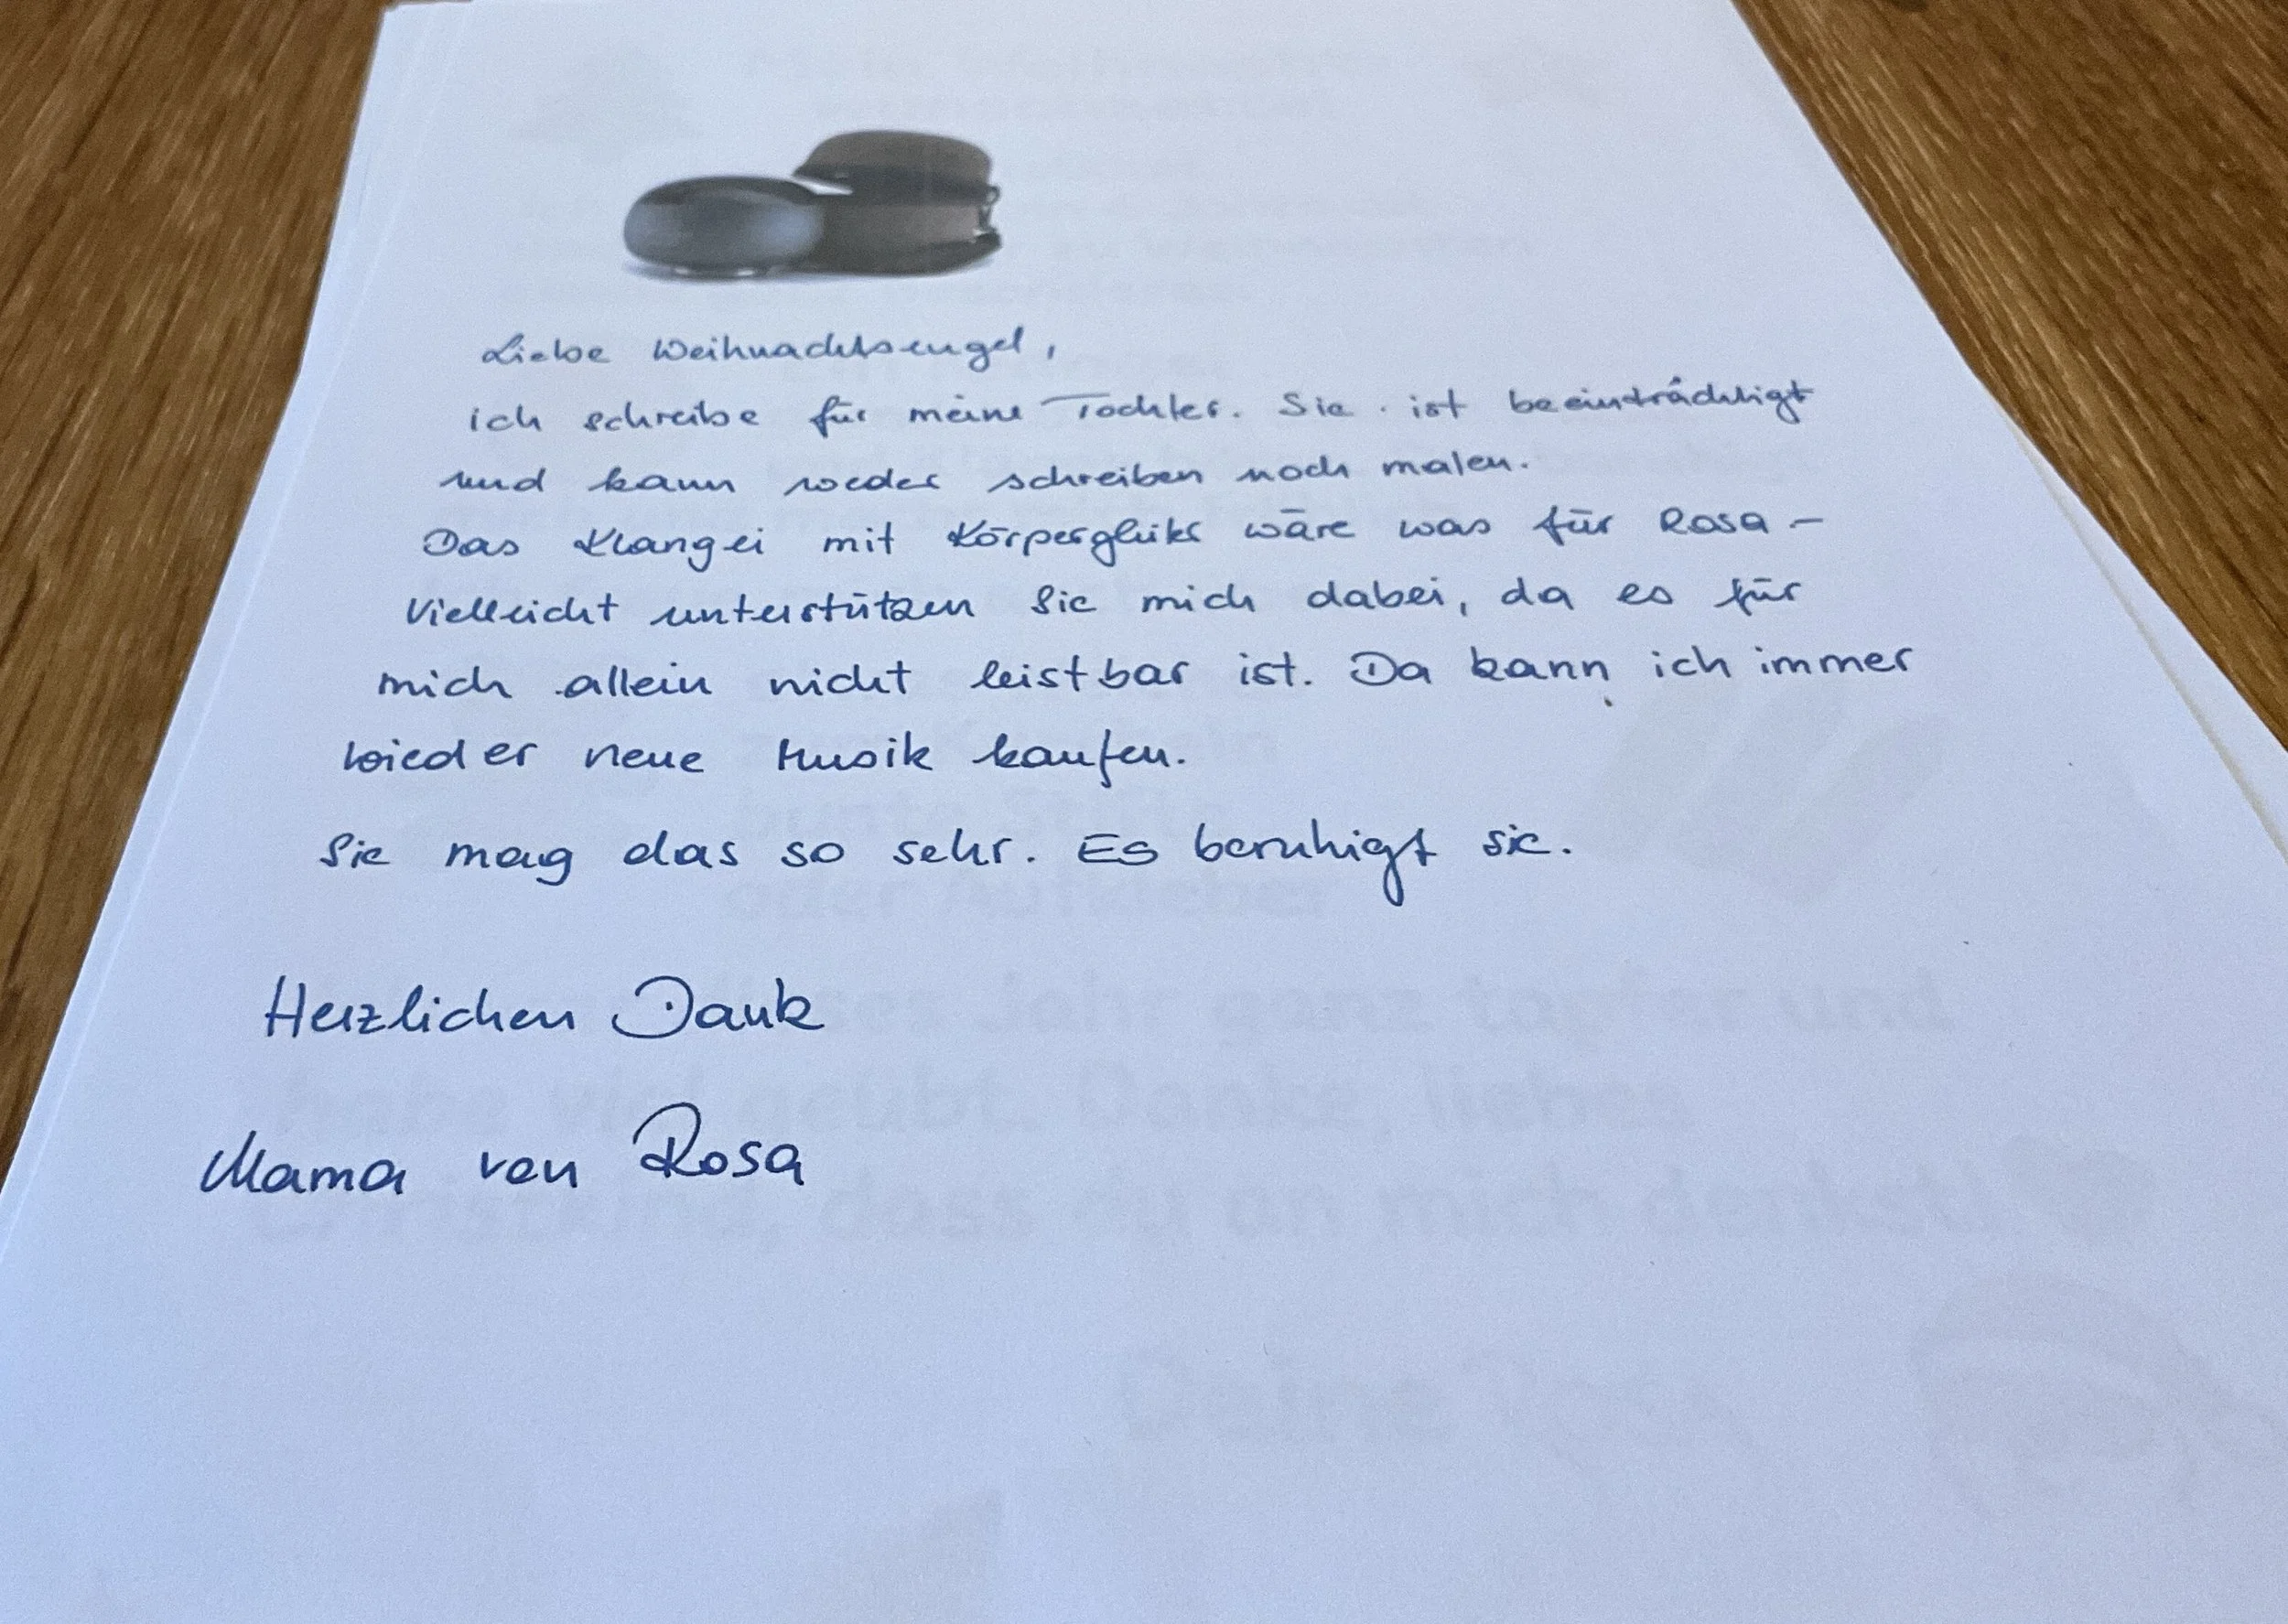 Liebe Weihnachtsengel,
ich schreibe für meine Tochter. Sie ist beeinträchtigt
und kann weder schreiben noch malen.
Das Klangei mit Körperglükr wäre was für Rosa –
Vielleicht unterstützen Sie mich dabei, da es für
mich allein nicht leistbar ist. Da kann ich immer
wieder neue Musik kaufen.
Sie mag das so sehr. Es beruhigt sie.
Herzlichen Dank
Mama von Rosa